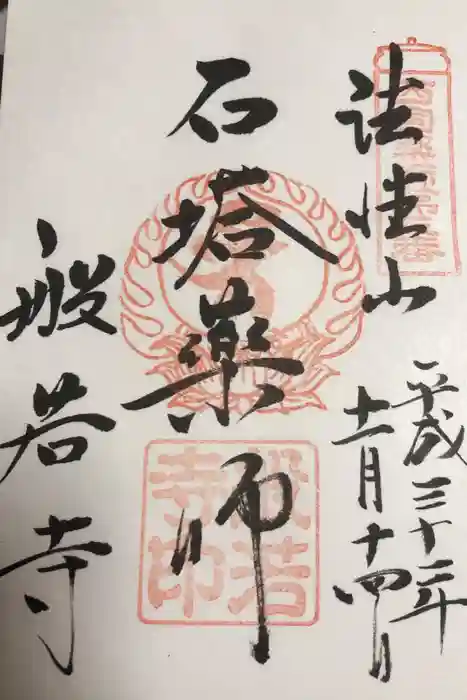 法性山
平成三十年
十一月十四日
石塔薬師
般若寺
般若寺印